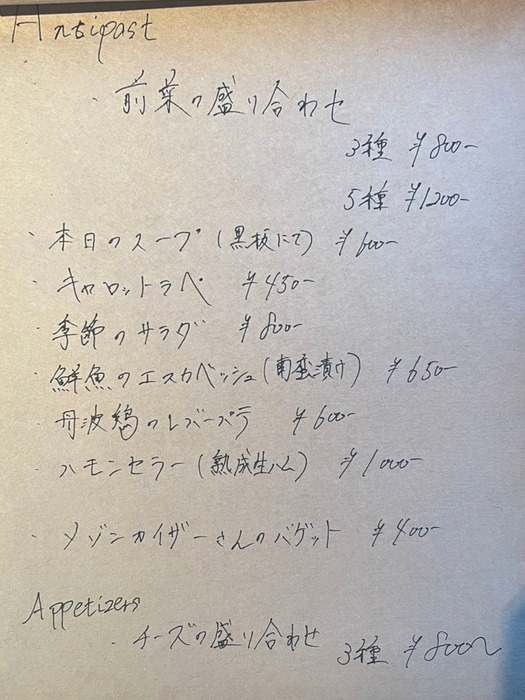 Antipast
・前菜の盛り合わせ
3種 ¥800-
5種 ¥1200-
・本日のスープ(黒板にて) ¥600-
・キャロットラペ ¥450-
・季節のサラダ ¥800-
・鮮魚のエスカベッシュ(南蛮漬け) ¥650-
・丹波鶏のレバーパテ ¥600-
・ハモンセラー(熟成生ハム) ¥1000-
・メゾンカイザーさんのバゲット ¥400-
Appetizers
・チーズの盛り合わせ 3種 ¥800〜